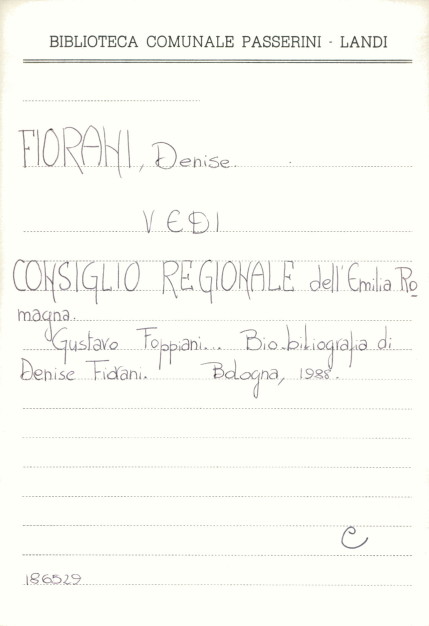 BIBLIOTECA COMUNALE PASSERINI - LANDI
FIORANI, Denise.
VEDI
CONSIGLIO REGIONALE dell'Emilia Ro
magna.
Gustavo Foppiani... Bio-bibliografia di
Denise Fiorani. Bologna, 1988.
C
186529